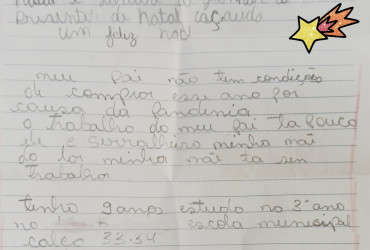 presente de natal
um feliz nat
meu pai não tem condições
de comprar esse ano por
causa da pandemia
o trabalho do meu pai ta pouco
ele e serralheiro minha mãe
do lar minha mãe ta sen
trabalho
tenho 9 anos estudo no 3º ano
no escola municipal
calço 33.34